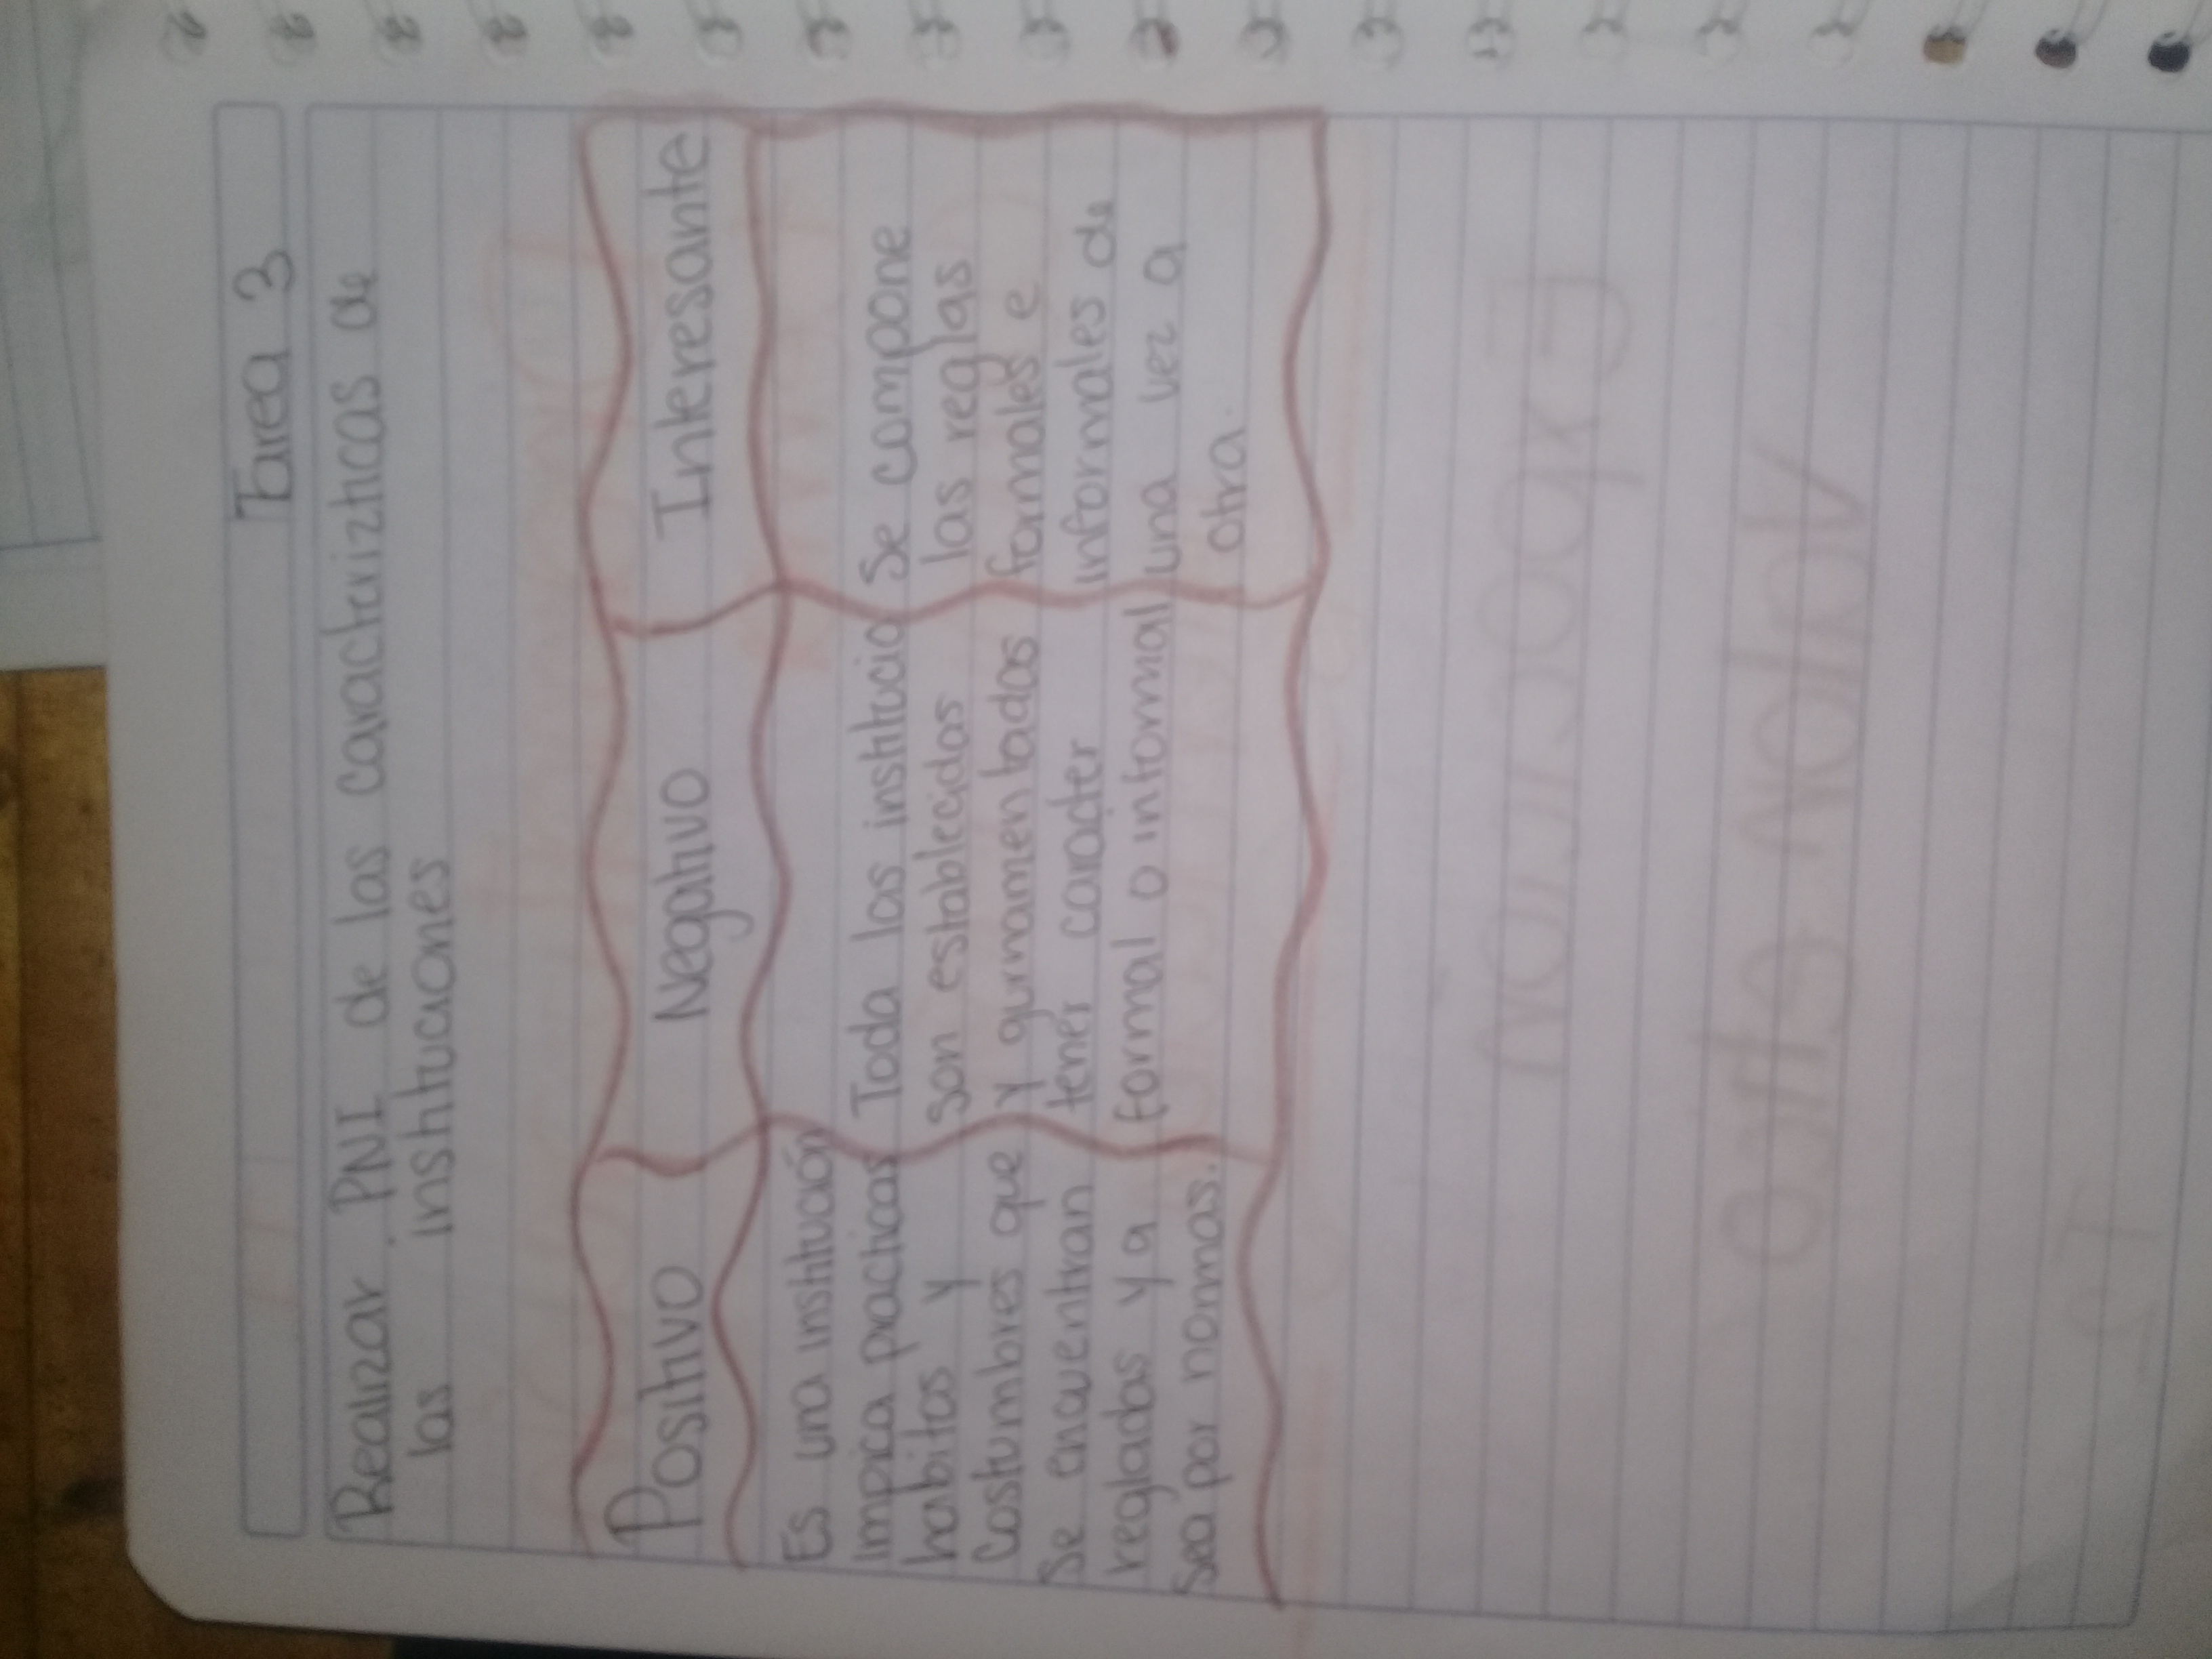 Tarea 3
Realizar PNI de las caracterizticas de
las instituciones
Positivo
Negativo
Interesante
Es una institución
impica practicas
habitos y
Costumbres que
se encuentran
regladas y a
sea por normas.
Toda las institucio
son establecidas
y gurnamentados
tener caracter
formal o informal
Se compone
las reglas
formales e
informales de
una vez a
otra.